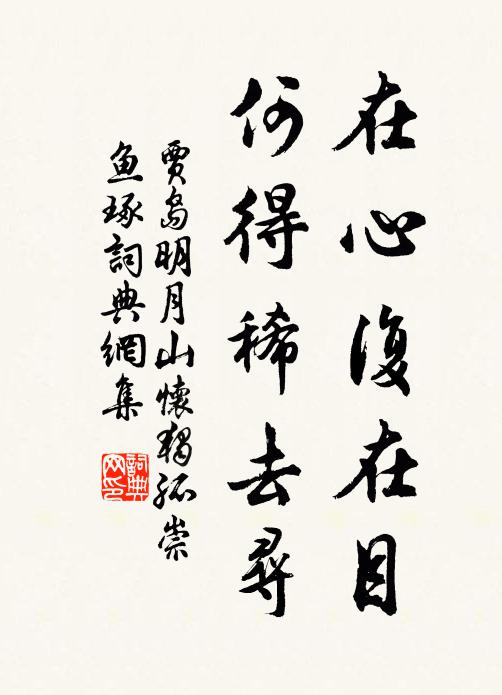 在心復在目
何得稀去尋
賈島明月山懷獨孤崇
魚琢詞典網集
詞典
网印